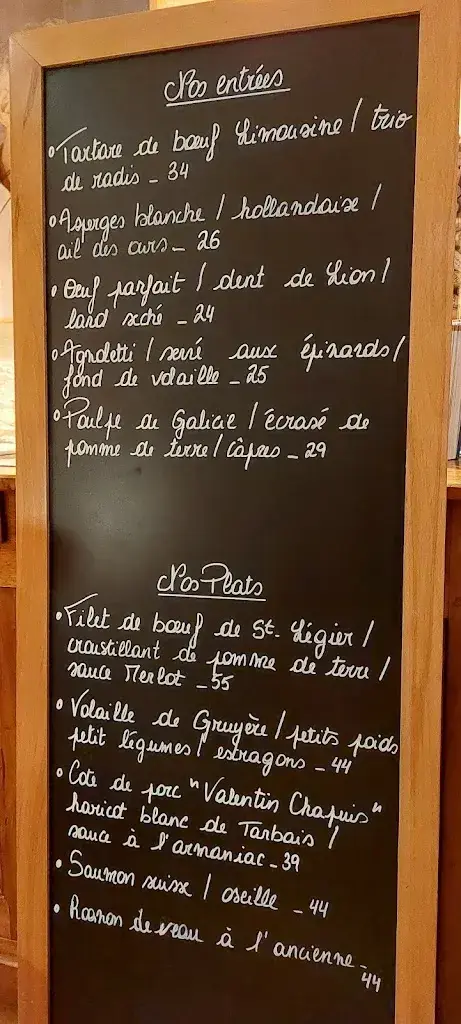 Nos entrées
• Tartare de bœuf Limousine / trio
de radis - 34
• Asperges blanche / hollandaise /
ail des ours - 26
• Œuf parfait / dent de Lion /
lard séché - 24
• Agnoletti / serré aux épinards /
fond de volaille - 25
• Poulpe de Galicie / écrasé de
pomme de terre / câpres - 29
Nos Plats
• Filet de bœuf de St. Légier /
croustillant de pomme de terre /
sauce Merlot - 55
• Volaille de Gruyère / petits poids
petit légumes / estragons - 44
• Cote de porc "Valentin Chapuis"
haricot blanc de Tarbais /
sauce à l'armaniac - 39
• Saumon suisse / oseille - 44
• Rognon de veau à l'ancienne -
44